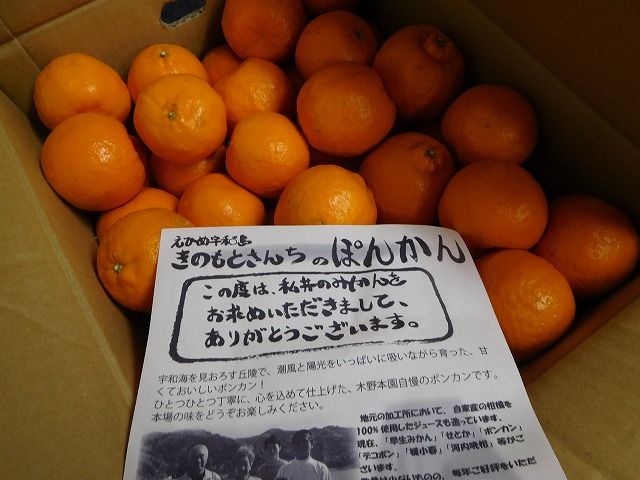 えひめ宇和島
きのもとさんちのぽんかん
この度は、私共のみかんを
お求めいただきまして、
ありがとうございます。
宇和海を見おろす丘陵で、潮風と陽光をいっぱいに吸いながら育った、甘
くておいしいポンカン!
ひとつひとつ丁寧に、心を込めて仕上げた、木野本園自慢のポンカンです。
本場の味をどうぞお楽しみください。
地元の加工所において、自家産の柑橘を
100%使用したジュースも造っています。
現在、「早生みかん」「せとか」「ポンカン」
「デコポン」「媛小春」「河内晩柑」等がご
ざいます。
数量は少ないものの、毎年ご好評をいただ